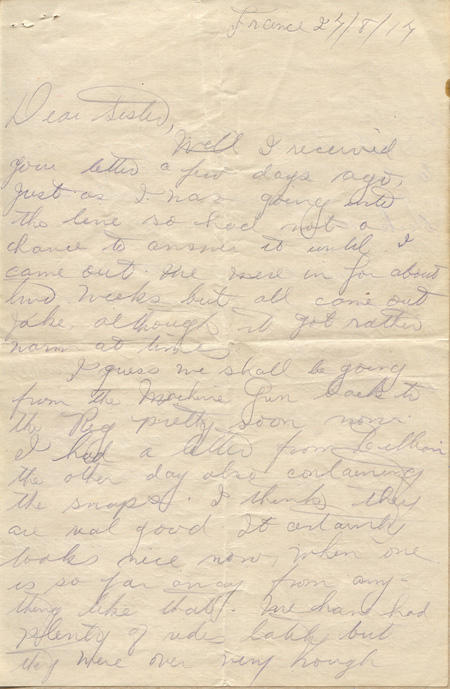 France 27/8/17
Dear Sister,
Well I received
your letter a few days ago,
just as I was going into
the line so had not a
chance to answer it until I
came out. We were in for about
two weeks but all came out
Jake, although it got rather
warm at times
I guess we shall be going
from the Machine Gun back to
the Reg pretty soon now.
I had a letter from
the other day also containing
the snaps. I think they
are real good It certainly
looks nice now, when one
is so far away from any-
thing like that. We have had
plenty of rides lately but
they were over very rough